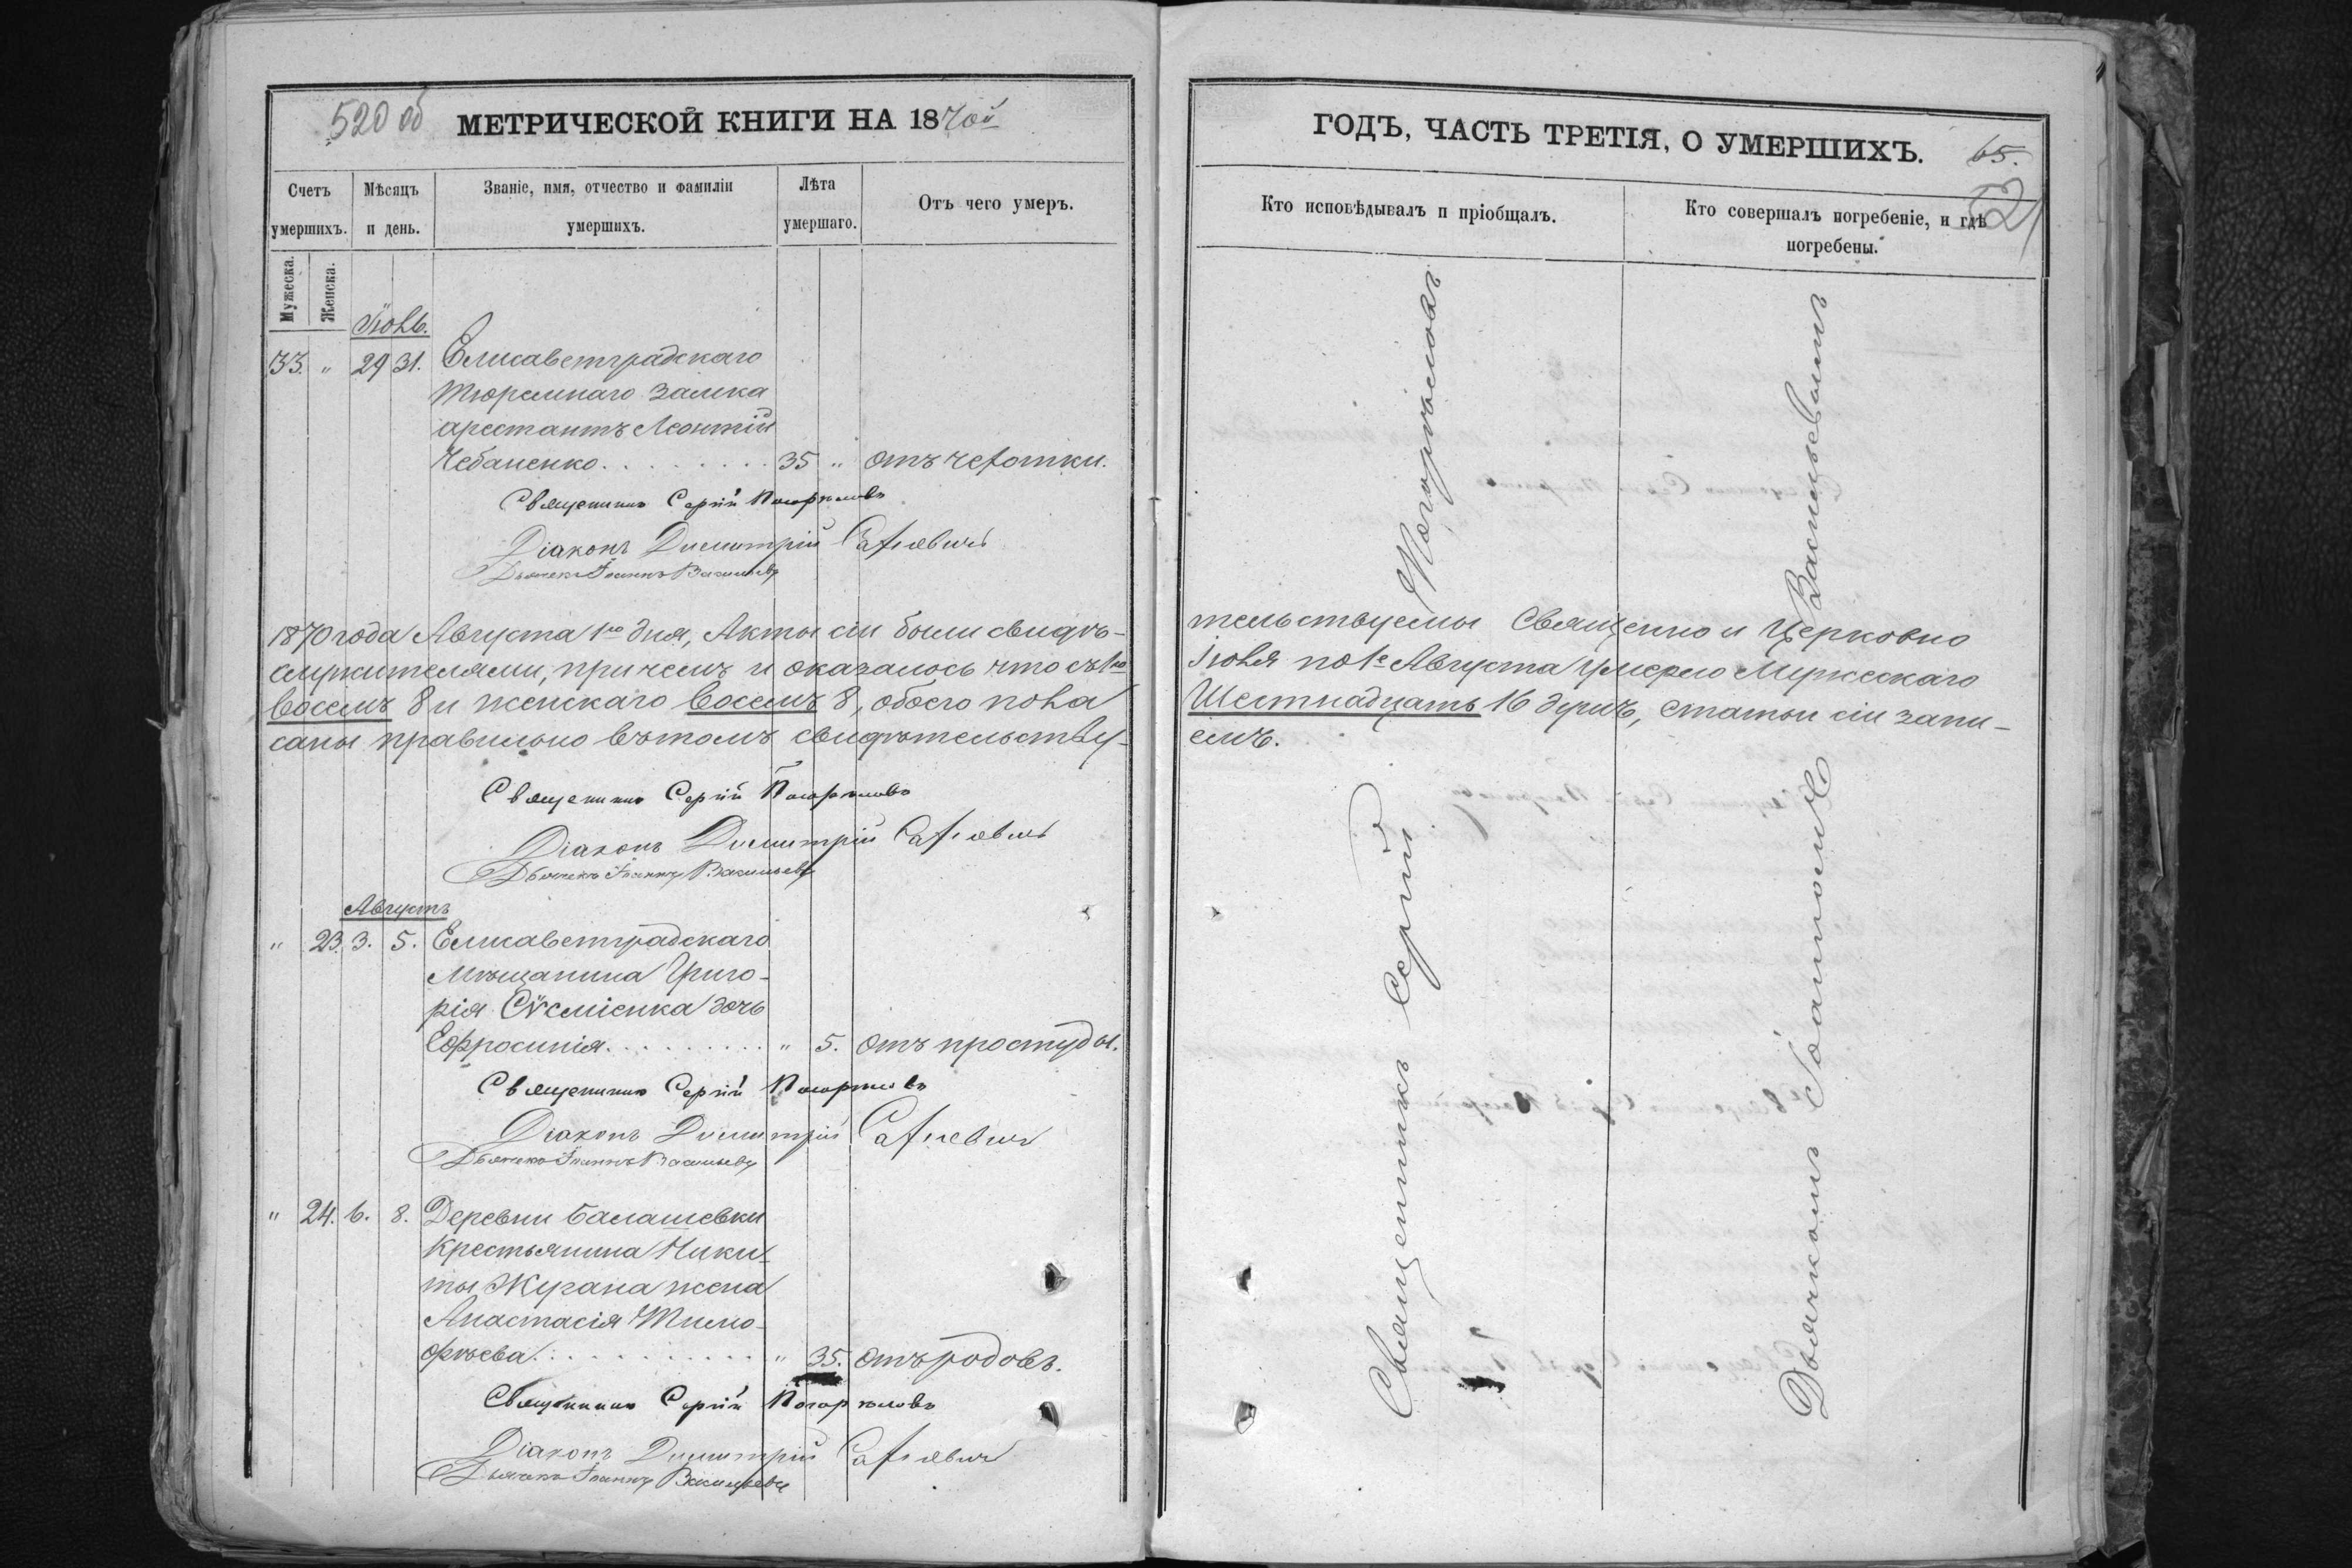 520 об
МЕТРИЧЕСКОЙ КНИГИ НА 1870й
Счетъ умершихъ.
Мѣсяцъ и день.
Званіе, имя, отчество и фамиліи умершихъ.
Лѣта умершаго.
Отъ чего умеръ.
Мужеска.
Женска.
Іюль.
33. " 29 31. Елисаветградскаго
тюремнаго замка
арестантъ Леонтій
Чебаненко. . . . . . . . 35 " отъ чехотки.
Священникъ Сергій Погорѣловъ
Діаконъ Димитрій
Дьячекъ Іоаннъ Васильевъ
1870 года Августа 1го дня, Акты сіи были свидѣ-
служителями, причемъ и оказалось что съ 1го
восемъ 8 и женскаго восемъ 8, обоего пола
саны правильно въ томъ свидѣтельству-
Священникъ Сергій Погорѣловъ
Діаконъ Димитрій
Дьячекъ Іоаннъ Васильевъ
Августъ
" 23. 3. 5. Елисаветградскаго
Мѣщанина Григо-
рія дочь
Евфросинія. . . . . . . . . " 5. отъ простуды.
Священникъ Сергій Погорѣловъ
Діаконъ Димитрій
Дьячекъ Іоаннъ Васильевъ
" 24. 6. 8. Деревни Балашевки
крестьянина Ники-
ты Журана жена
Анастасія Тимо-
фѣева. . . . . . . . . . . " 35. отъ родовъ.
Священникъ Сергій Погорѣловъ
Діаконъ Димитрій
Дьячекъ Іоаннъ Васильевъ
ГОДЪ, ЧАСТЬ ТРЕТІЯ, О УМЕРШИХЪ.
65.
521
Кто исповѣдывалъ и пріобщалъ.
Кто совершалъ погребеніе, и гдѣ погребены.
тельствуемы Священно и Церковно
Іюля по 1е Августа умерло Мужескаго
Шестнадцать 16 душъ, статьи сіи запи-
емъ.
Священникъ Сергій Погорѣловъ
Дьячкомъ Іоанномъ Васильевымъ